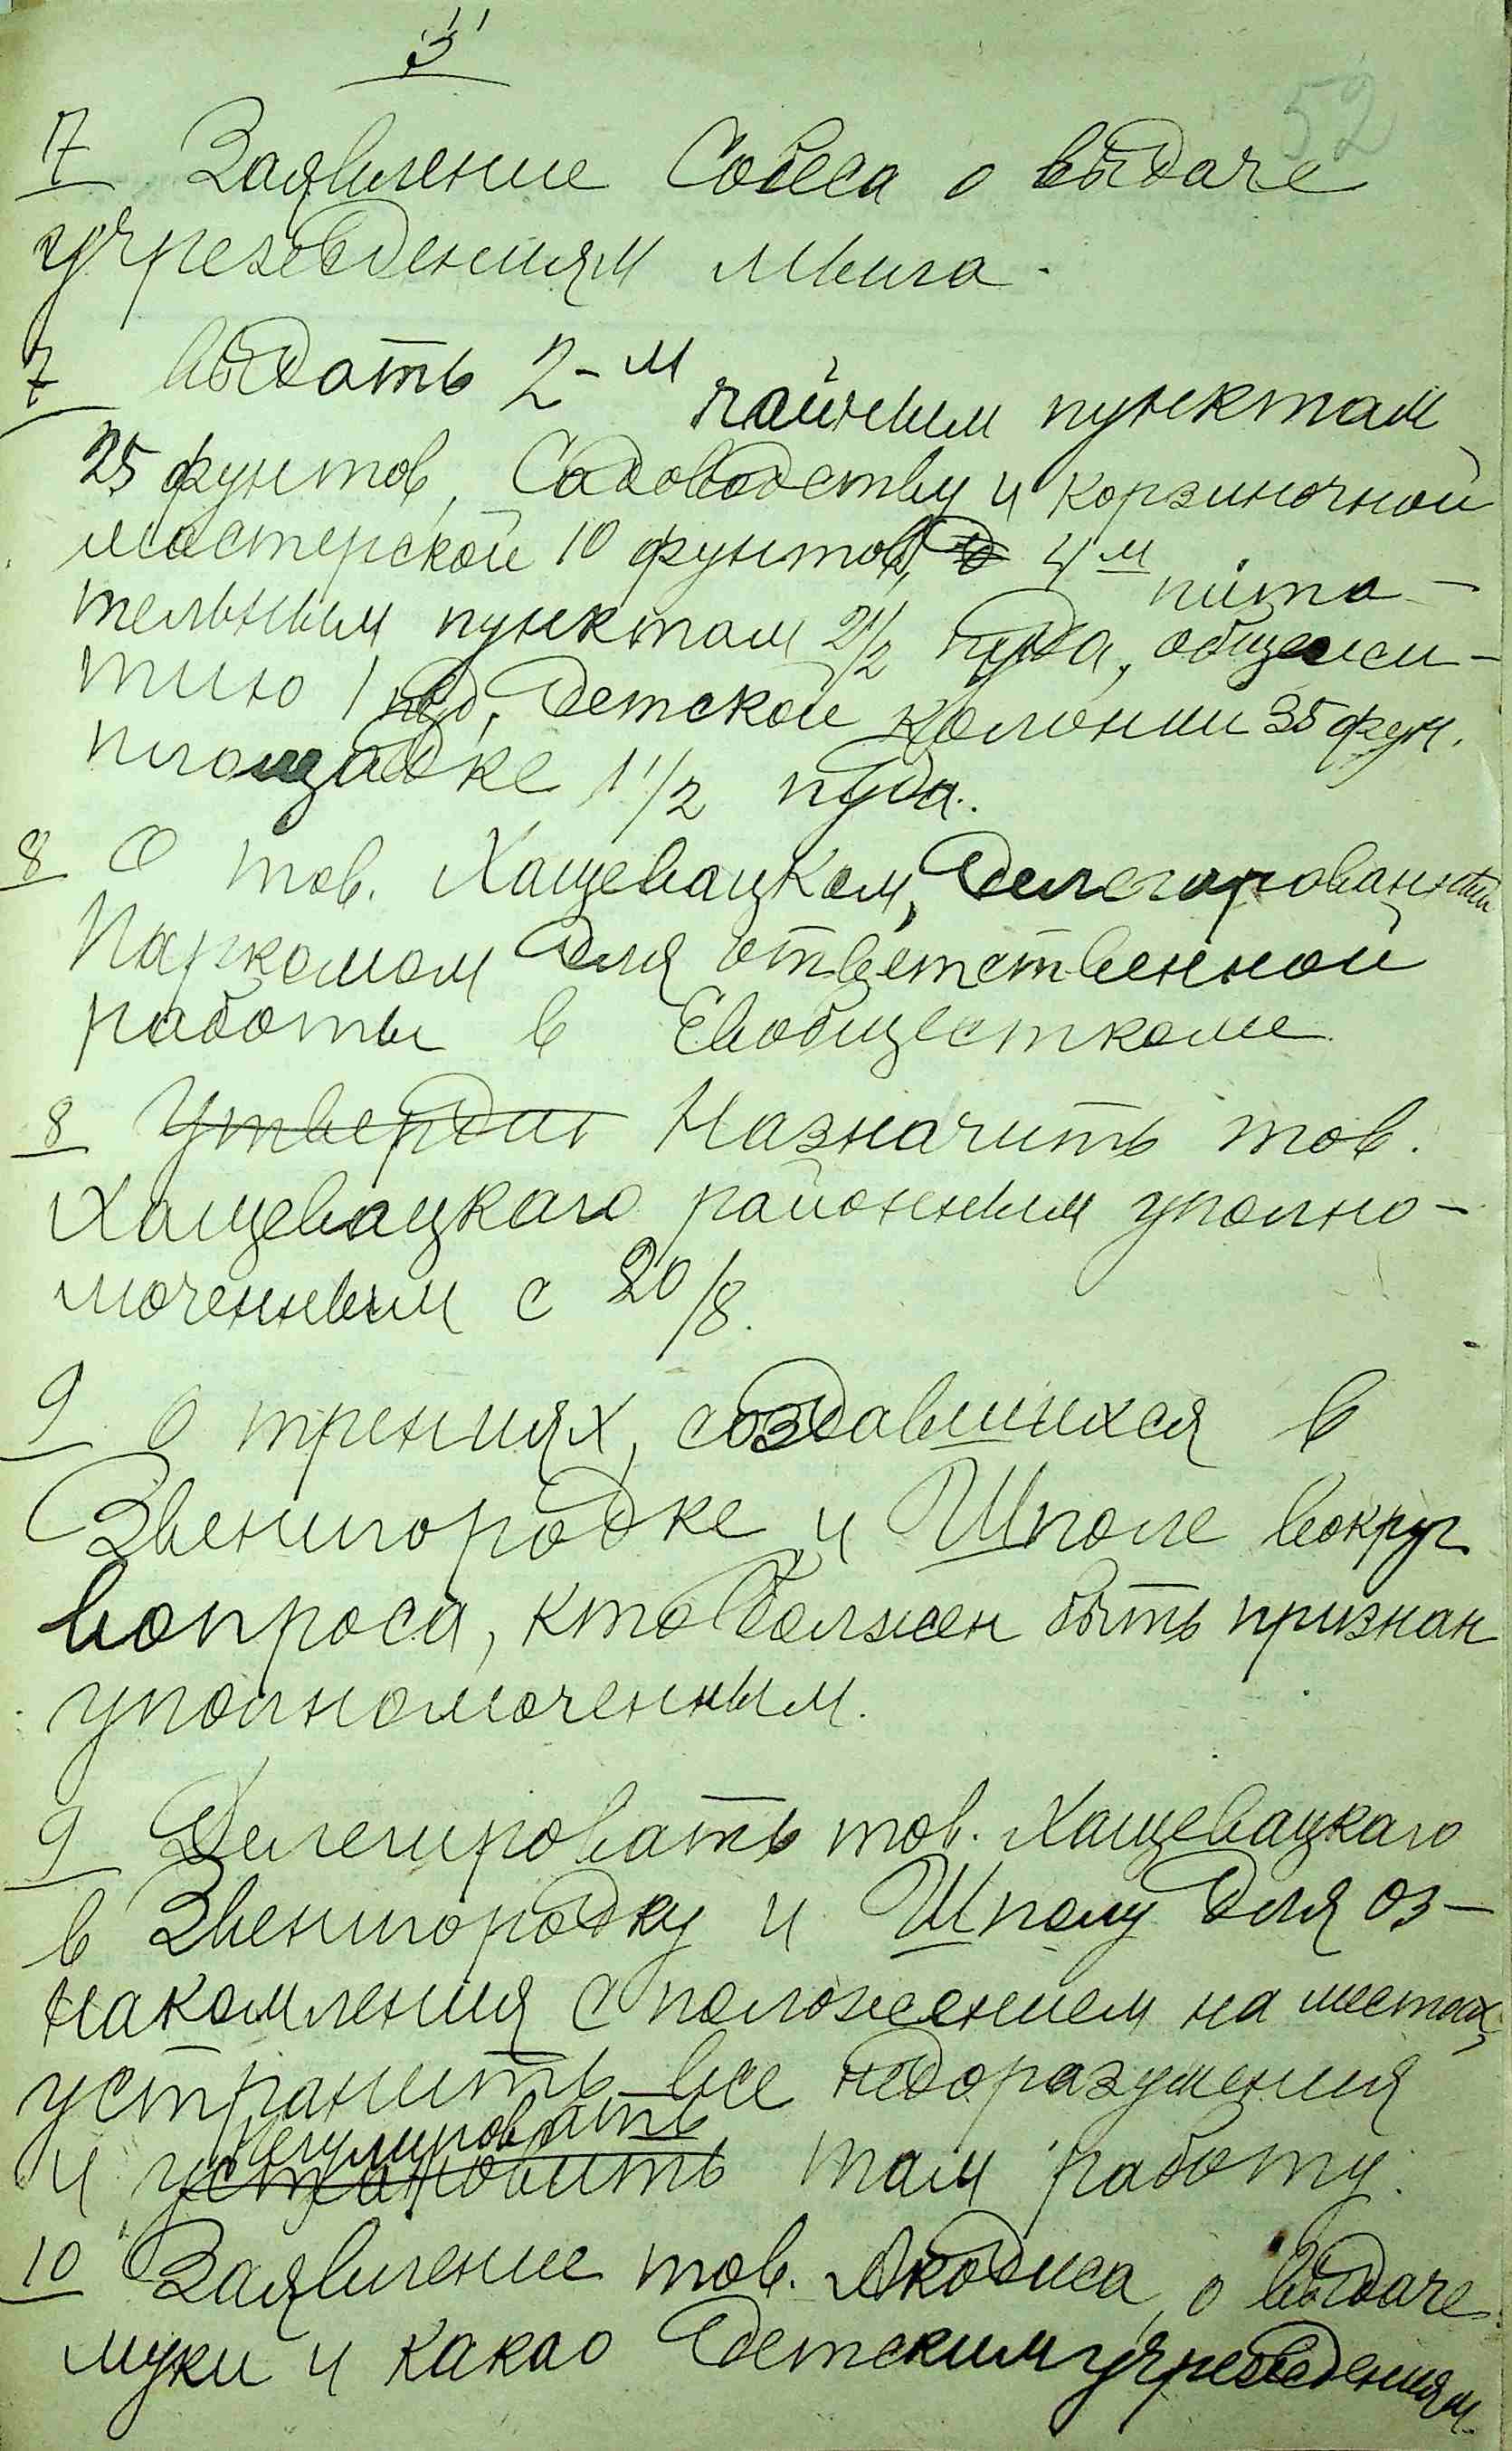 3
52
7 Заявление Собеса о выдаче
учреждениям мыла.
7 Выдать 2-м чайным пунктам
25 фунтов, Садоводству и корзиночной
мастерской 10 фунтов, 4м пита-
тельным пунктам 2 1/2 пуда, общежи-
тию 1 пуд, Детской колонии 35 фун.
площадке 1 1/2 пуда.
8 О тов. Хащевацком, делегированный
Паркомом для ответственной
работы в Евобщесткоме
8 Утвердит Назначить тов.
Хащевацкаго районным уполно-
моченным с 20/8.
9 О трениях, создавшихся в
Звенигородке и Шполе вокруг
вопроса, кто должен быть признан
уполномоченным.
9 Делегировать тов. Хащевацкаго
в Звенигородку и Шполу для оз-
накомления с положением на местах,
устранить все недоразумения
регулировать
и установить там работу.
10 Заявление тов. о выдаче
муки и какао детским учреждениям.